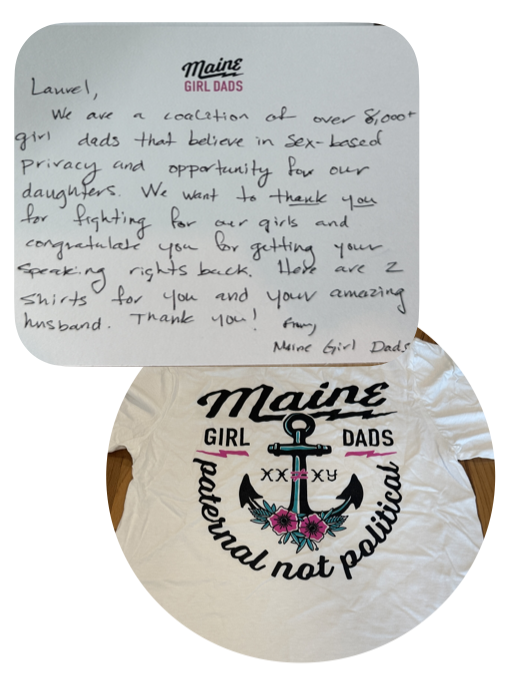 Maine
GIRL DADS
Laurel,
We are a coalition of over 8,000+
girl dads that believe in sex-based
privacy and opportunity for our
daughters. We want to thank you
for fighting for our girls and
congratulate you for getting your
speaking rights back. Here are 2
shirts for you and your amazing
husband. Thank you!
Maine Girl Dads
Maine
GIRL DADS
XX ≠ XY
paternal not political